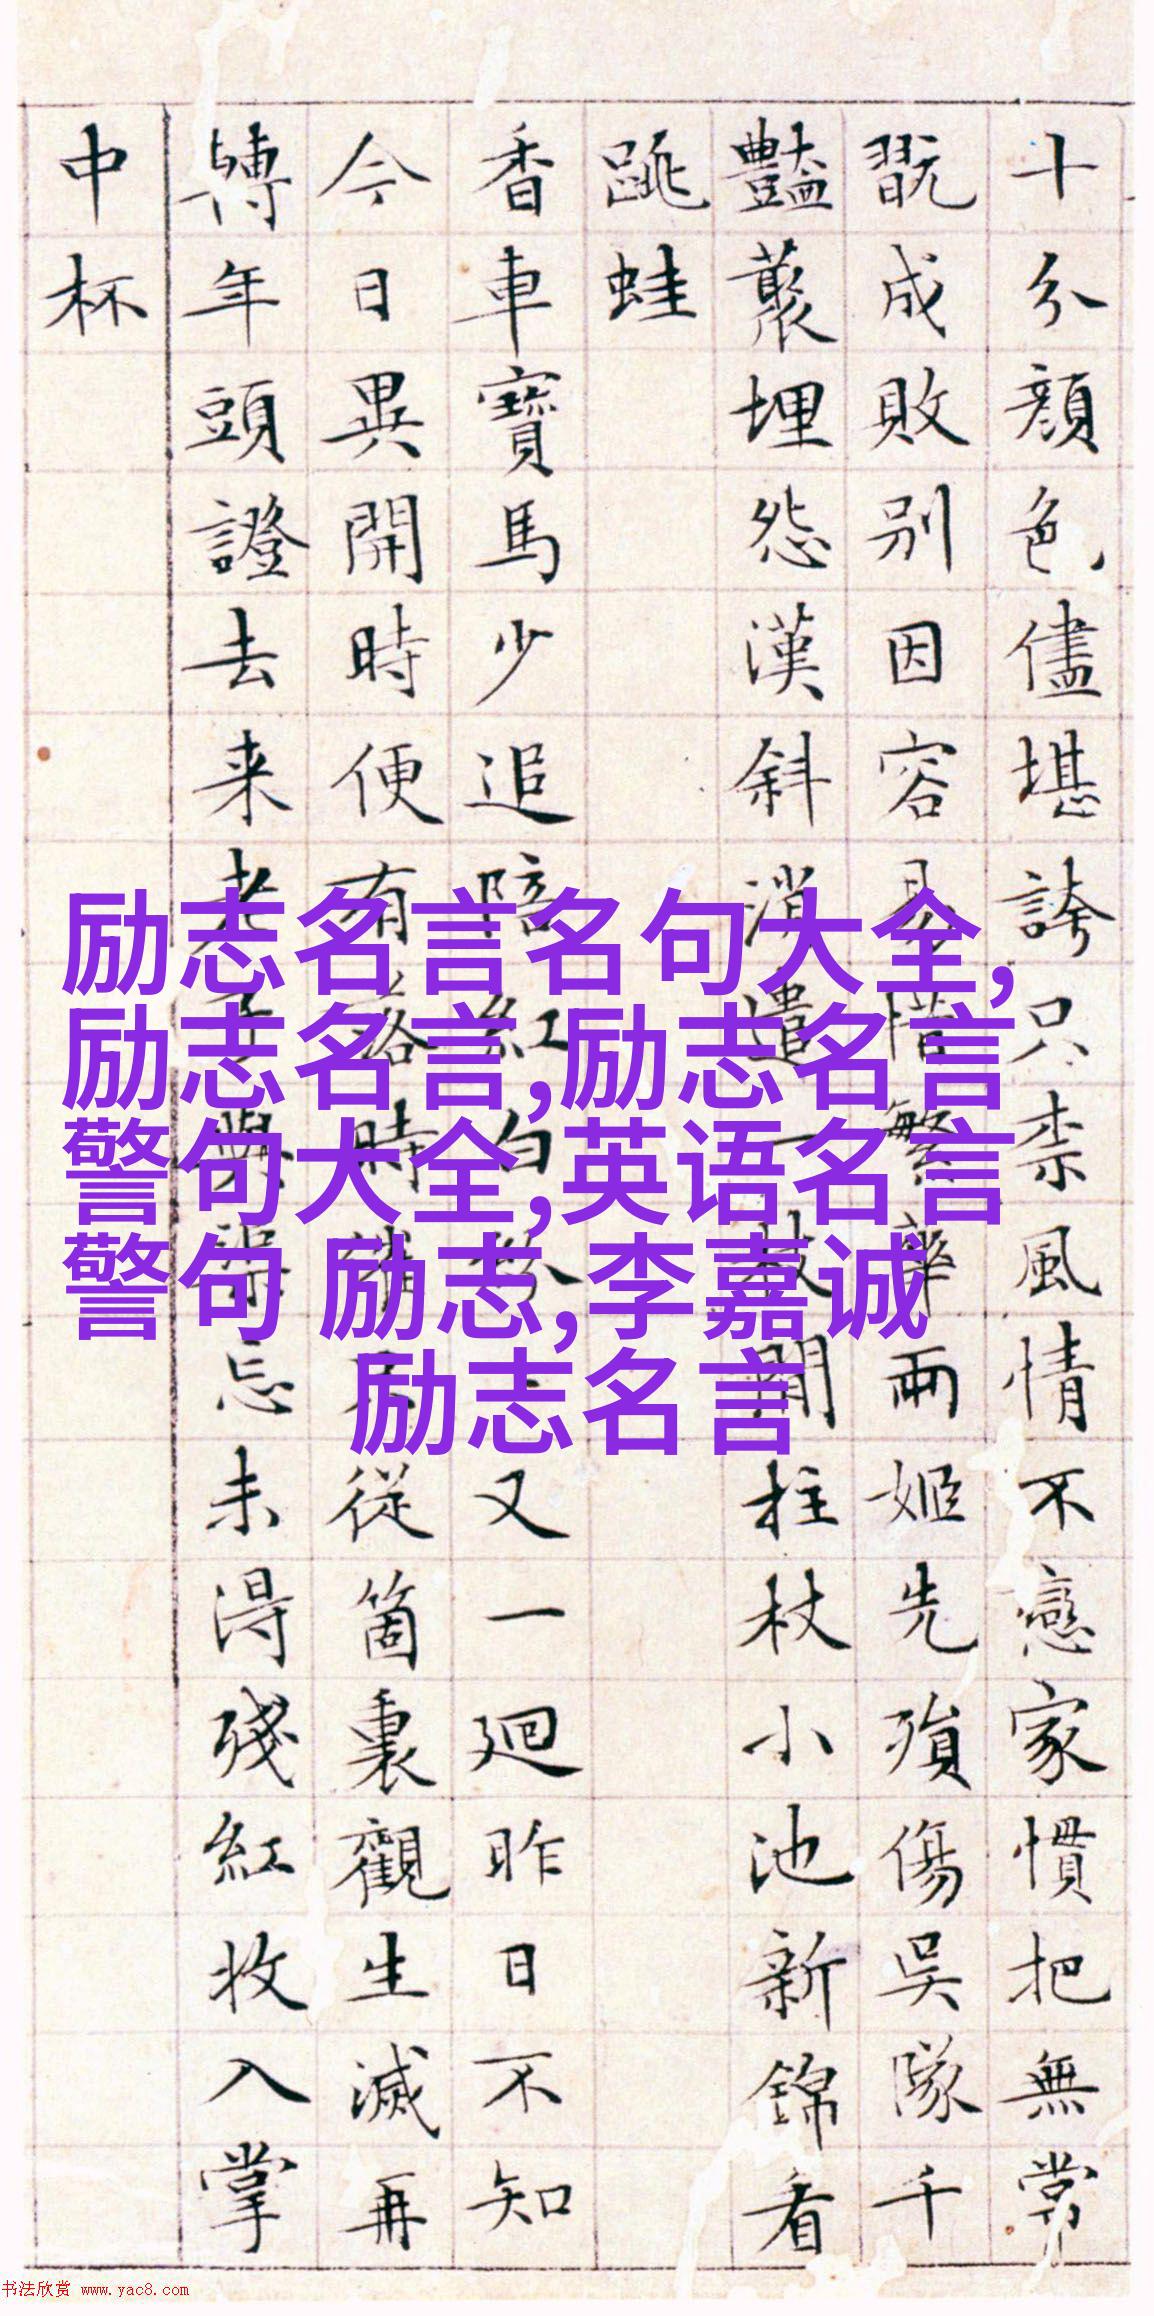 十分顔色儘堪誇只柰風情不戀家慣把無常
翫成敗別因容易惜繁華兩姬先殞傷吳隊千
豔藂埋怨漢斜消遣一枝閒柱杖小池新錦看
跳蛙
香車寶馬少追陪紅白又一廻昨日不知
今日異開時便有落時從箇裏觀生滅再
轉年頭證去来老與忘未淂殘紅收入掌
中杯
励志名言名句大全,
励志名言,励志名言
警句大全,英语名言
警句 励志,李嘉诚
励志名言
书法欣赏 www.yac8.com